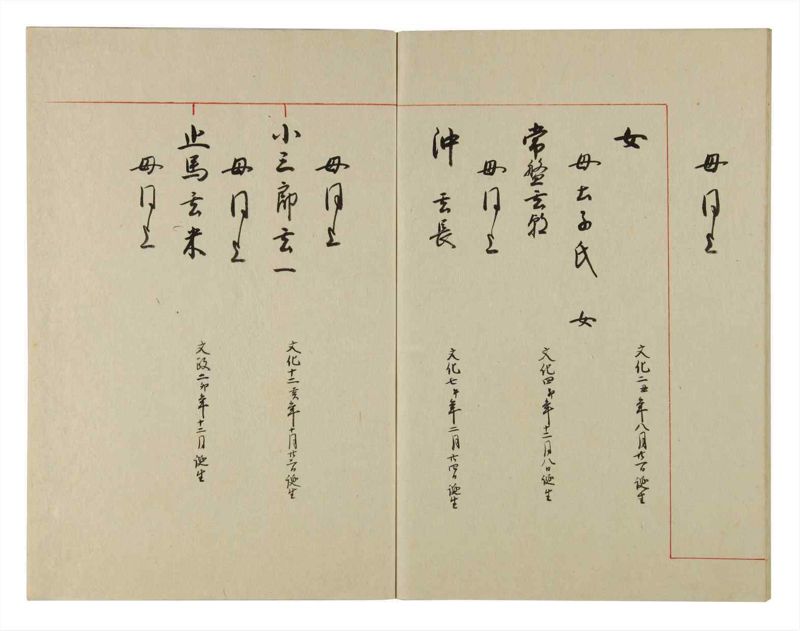 母同上
女
文化二丑年八月廿日誕生
母子氏 女
常盤玄
文化四卯年十二月八日誕生
母同上
沖 玄長
文化七午年二月廿四日誕生
母同上
小三郎玄一
文化十二亥年十月廿日誕生
母同上
止馬玄米
文政二卯年十二月誕生
母同上